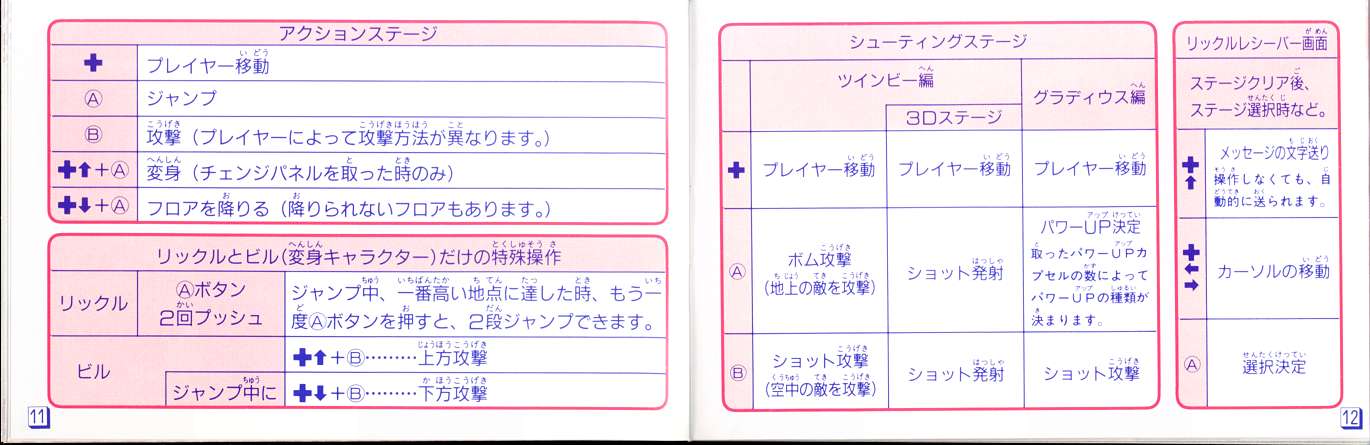 アクションステージ
✚ プレイヤー移動
Ⓐ ジャンプ
Ⓑ 攻撃（プレイヤーによって攻撃方法が異なります。）
✚⬆＋Ⓐ 変身（チェンジパネルを取った時のみ）
✚⬇＋Ⓐ フロアを降りる（降りられないフロアもあります。）
リックルとビル（変身キャラクター）だけの特殊操作
リックル
Ⓐボタン
2回プッシュ
ジャンプ中、一番高い地点に達した時、もう一
度Ⓐボタンを押すと、2段ジャンプできます。
ビル
✚⬆＋Ⓑ………上方攻撃
ジャンプ中に
✚⬇＋Ⓑ………下方攻撃
11
シューティングステージ
ツインビー編
3Dステージ
グラディウス編
✚
プレイヤー移動
プレイヤー移動
プレイヤー移動
Ⓐ
ボム攻撃
（地上の敵を攻撃）
ショット発射
パワーUP決定
取ったパワーUPカ
プセルの数によって
パワーUPの種類が
決まります。
Ⓑ
ショット攻撃
（空中の敵を攻撃）
ショット発射
ショット攻撃
リックルレシーバー画面
ステージクリア後、
ステージ選択時など。
✚⬆
メッセージの文字送り
操作しなくても、自
動的に送られます。
✚⬅➡
カーソルの移動
Ⓐ
選択決定
12